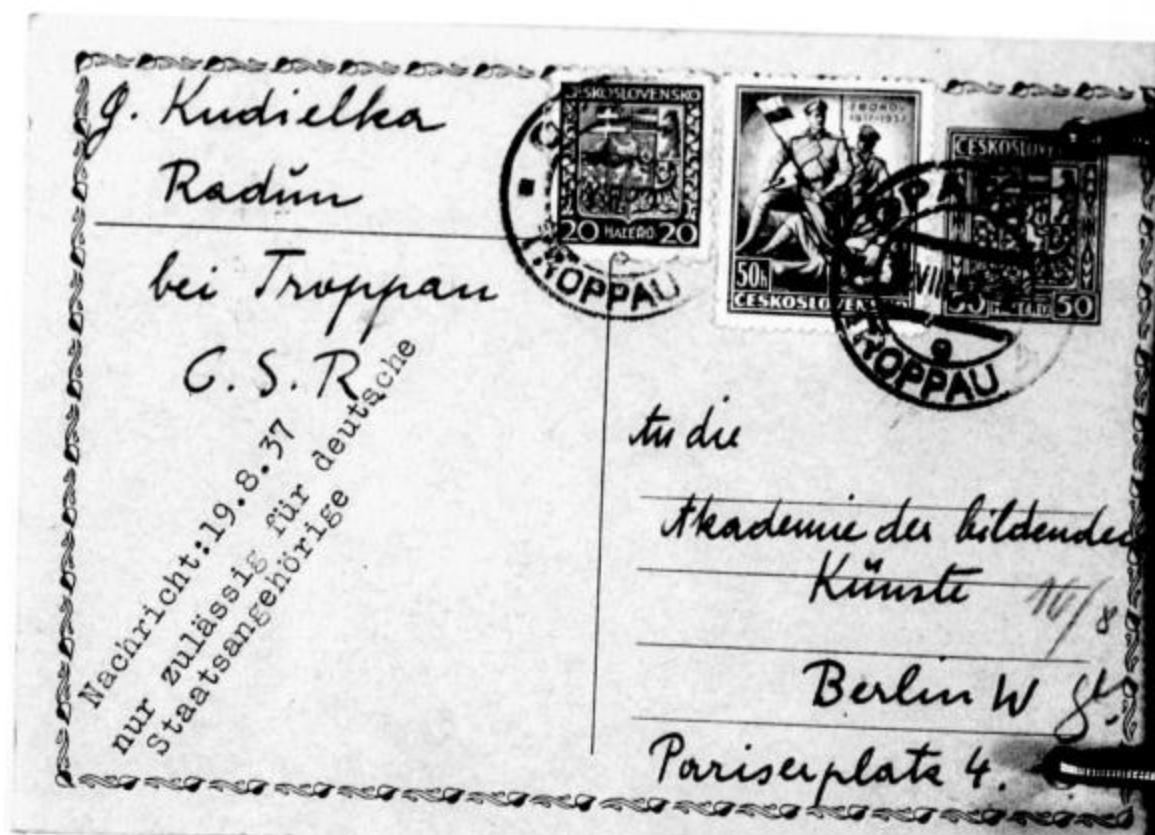 G. Kudielka
Radun
bei Troppau
C. S. R.
Nachricht: 19.8.37
nur zulässig für deutsche
Staatsangehörige
ČESKOSLOVENSKO
20 HALÉŘŮ 20
ZBOROV
1917-1937
50h
ČESKOSLOVENSKO
50 50
TROPPAU
TROPPAU
An die
Akademie der bildenden
Künste
16/8
Berlin W
Pariserplatz 4.